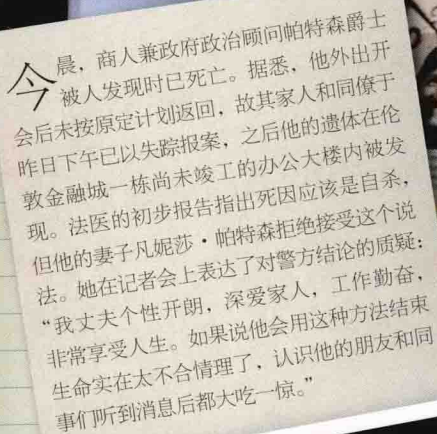 今晨，商人兼政府政治顾问帕特森爵士
被人发现时已死亡。据悉，他外出开
会后未按原定计划返回，故其家人和同僚于
昨日下午已以失踪报案，之后他的遗体在伦
敦金融城一栋尚未竣工的办公大楼内被发
现。法医的初步报告指出死因应该是自杀，
但他的妻子凡妮莎·帕特森拒绝接受这个说
法。她在记者会上表达了对警方结论的质疑：
“我丈夫个性开朗，深爱家人，工作勤奋，
非常享受人生。如果说他会用这种方法结束
生命实在太不合情理了，认识他的朋友和同
事们听到消息后都大吃一惊。”